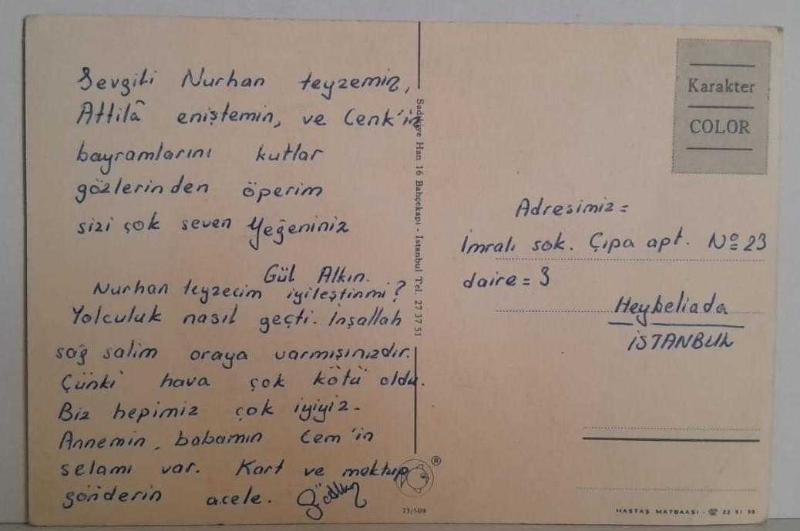 Sevgili Nurhan teyzemin,
Attilâ eniştemin, ve Cenk'in
bayramlarını kutlar
gözlerinden öperim
sizi çok seven Yeğeniniz
Gül Alkın.
Nurhan teyzecim iyileştinmi?
Yolculuk nasıl geçti. İnşallah
sağ salim oraya varmışsınızdır.
Çünki hava çok kötü oldu.
Biz hepimiz çok iyiyiz.
Annemin, babamın Cem'in
selamı var. Kart ve mektup
gönderin acele.
Han 16 Bahçekapı - İstanbul Tel. 27 37 51
Karakter
COLOR
Adresimiz=
İmralı sok. Çıpa apt. No=23
daire=3
Heybeliada
İSTANBUL
®
HASTAŞ MATBAASI - ☎ 22 51 50